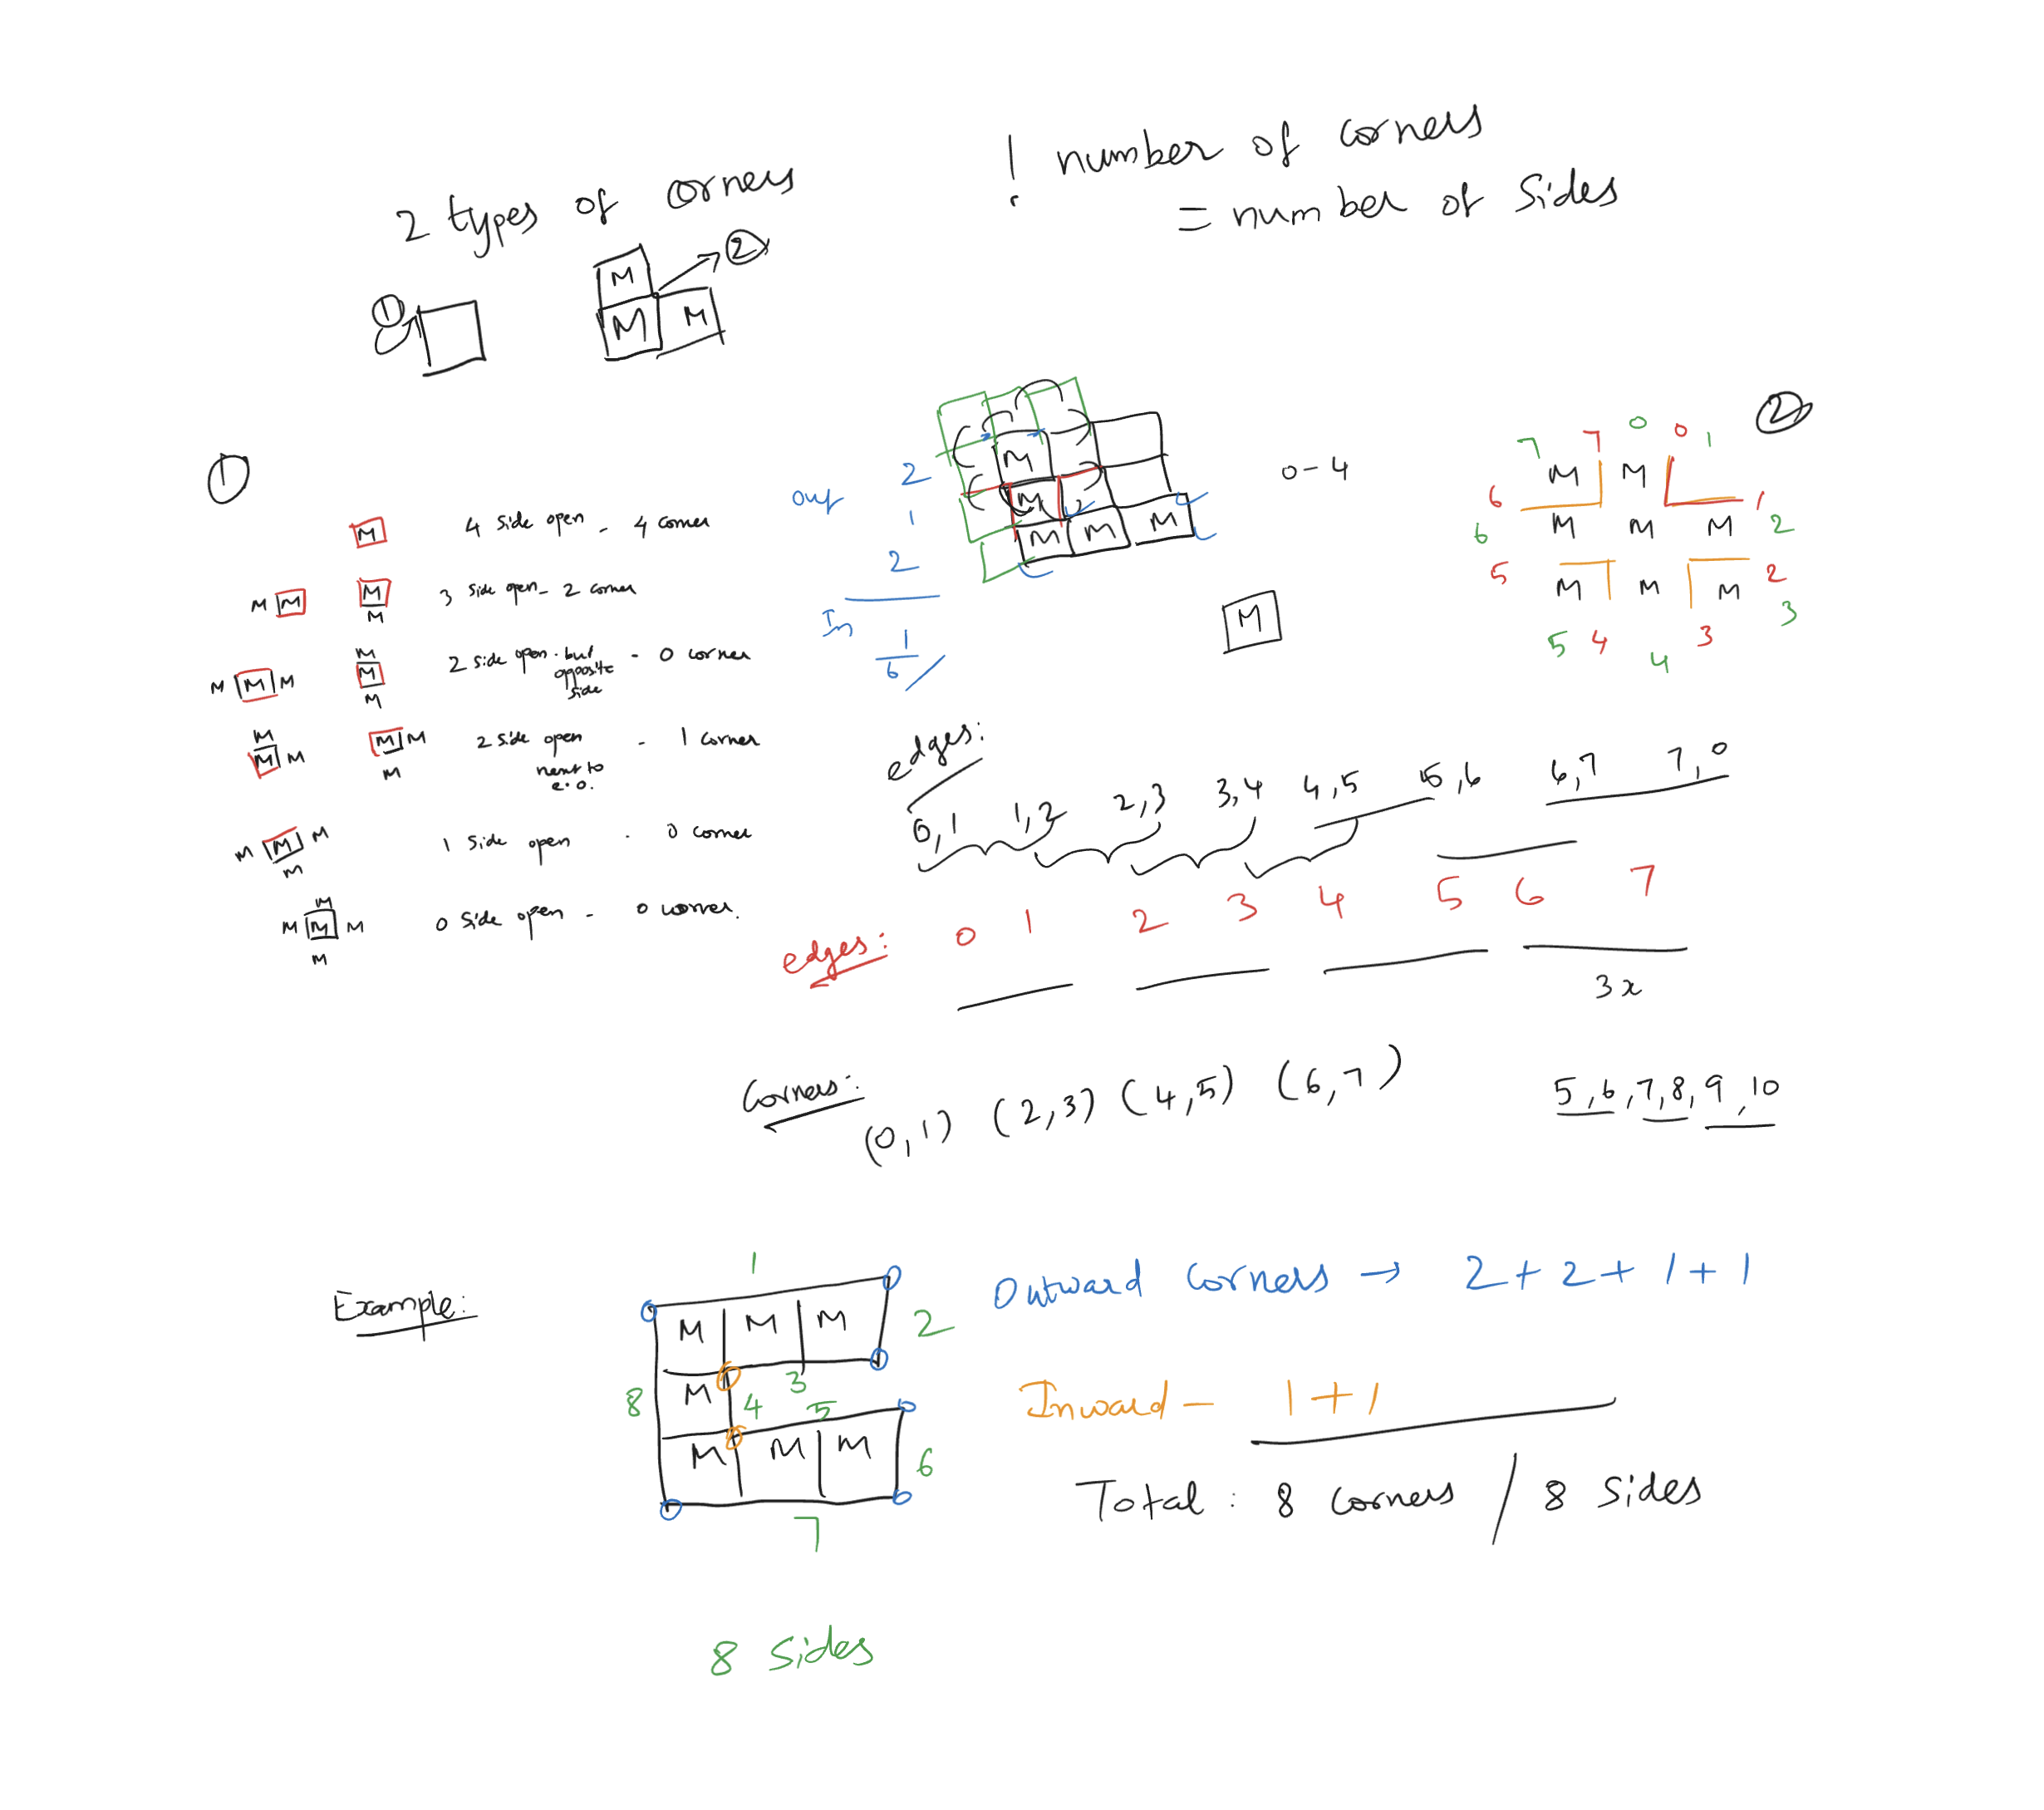 2 types of corners
! number of corners
= number of sides
1
2
M
M M
1
M 4 side open - 4 corner
M M M 3 side open - 2 corner
M
M
M M M M 2 side open - but opposite side - 0 corner
M
M
M M M M 2 side open next to e.o. - 1 corner
M
M M M 1 side open - 0 corner
M
M
M M M 0 side open - 0 corner.
M
out 2
1
2
In 1
6
M
M
M M M
0-4
M
2
7 7 0 0 1
6 M M 1
6 M M M 2
5 M M M 2
3
5 4 4 3
edges:
0,1 1,2 2,3 3,4 4,5 5,6 6,7 7,0
edges: 0 1 2 3 4 5 6 7
3x
Corners:
(0,1) (2,3) (4,5) (6,7)
5,6,7,8,9,10
Example:
1
M M M 2
3
8 M 4 5
M M M 6
7
8 sides
Outward corners → 2+2+1+1
Inward - 1+1
Total: 8 corners / 8 sides